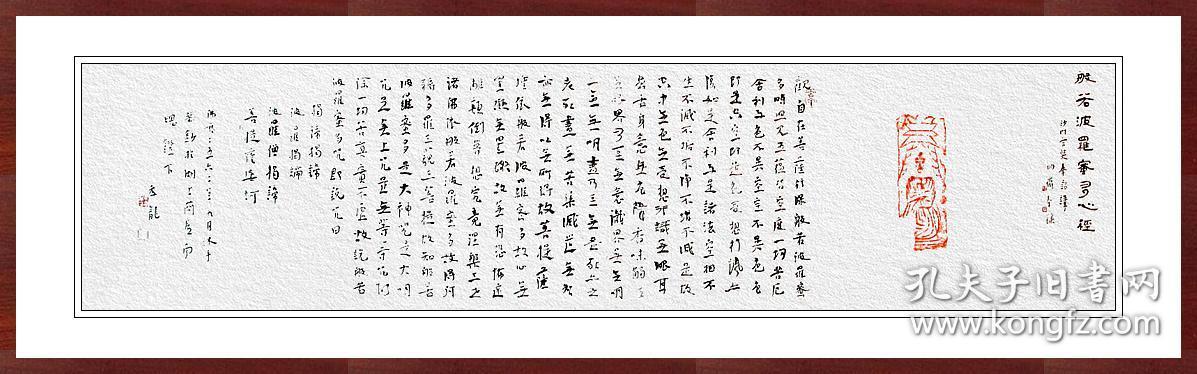 般若波羅蜜多心經
觀自在菩薩行深般若波羅蜜
多時照見五蘊皆空度一切苦厄
舍利子色不異空空不異色色
即是空空即是色受想行識亦
復如是舍利子是諸法空相不
生不滅不垢不淨不增不減是故
空中無色無受想行識無眼耳
鼻舌身意無色聲香味觸法
無眼界乃至無意識界無無明
老死盡無苦集滅道無智
亦無得以無所得故菩提薩
埵依般若波羅蜜多故心無
罣礙無罣礙故無有恐怖遠
離顛倒夢想究竟涅槃三世
諸佛依般若波羅蜜多故得阿
耨多羅三藐三菩提故知般若
波羅蜜多是大神咒是大明
咒是無上咒是無等等咒能
除一切苦真實不虛故說般若
波羅蜜多咒即說咒曰
揭諦揭諦
波羅揭諦
波羅僧揭諦
菩提薩婆訶
孔夫子旧书网
www.kongfz.com